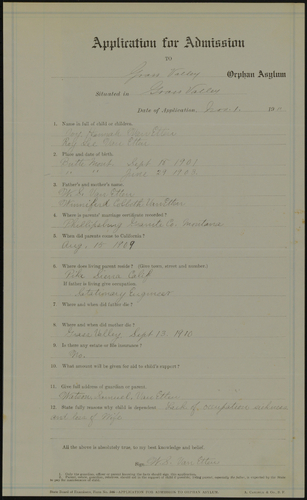 Application for Admission
TO
Grass Valley Orphan Asylum
Situated in Grass Valley
Date of Application, Nov 191
1. Name in full of child or children.
Van Etten
Roy Van Etten
2. Place and date of birth.
Butte Mont. Sept 15 1901
" " June 29 1903
3. Father's and mother's name.
W. S. Van Etten
Winnifred Van Etten
4. Where is parents' marriage certificate recorded?
Phillipsburg Granite Co. Montana
5. When did parents come to California?
Aug. 14 1909
6. Where does living parent reside? (Give town, street and number.)
Calif
If father is living give occupation.
Stationary Engineer
7. Where and when did father die?
8. Where and when did mother die?
Grass Valley Sept 13, 1910
9. Is there any estate or life insurance?
No.
10. What amount will be given for aid in child's support?
11. Give full address of guardian or parent.
Van Etten
12. State fully reasons why child is dependent. Lack of occupation sickness
and loss of Wife
All the above is absolutely true to my best knowledge and belief.
Sign W. S. Van Etten